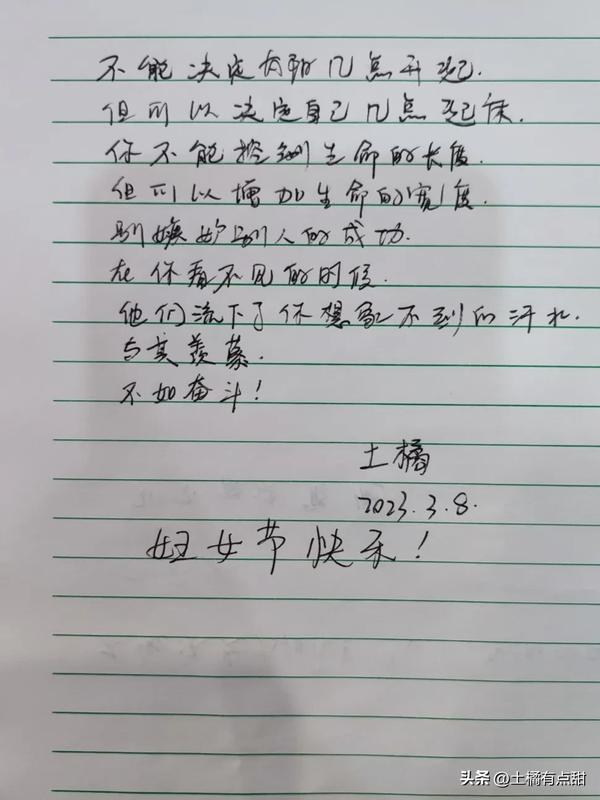 不能决定太阳几点升起.
但可以决定自己几点起床.
你不能控制生命的长度.
但可以增加生命的宽度.
别嫉妒别人的成功.
在你看不见的时候.
他们流下了你想象不到的汗水.
与其羡慕.
不如奋斗!
土橘
2023.3.8.
妇女节快乐!
头条 @土橘有点甜